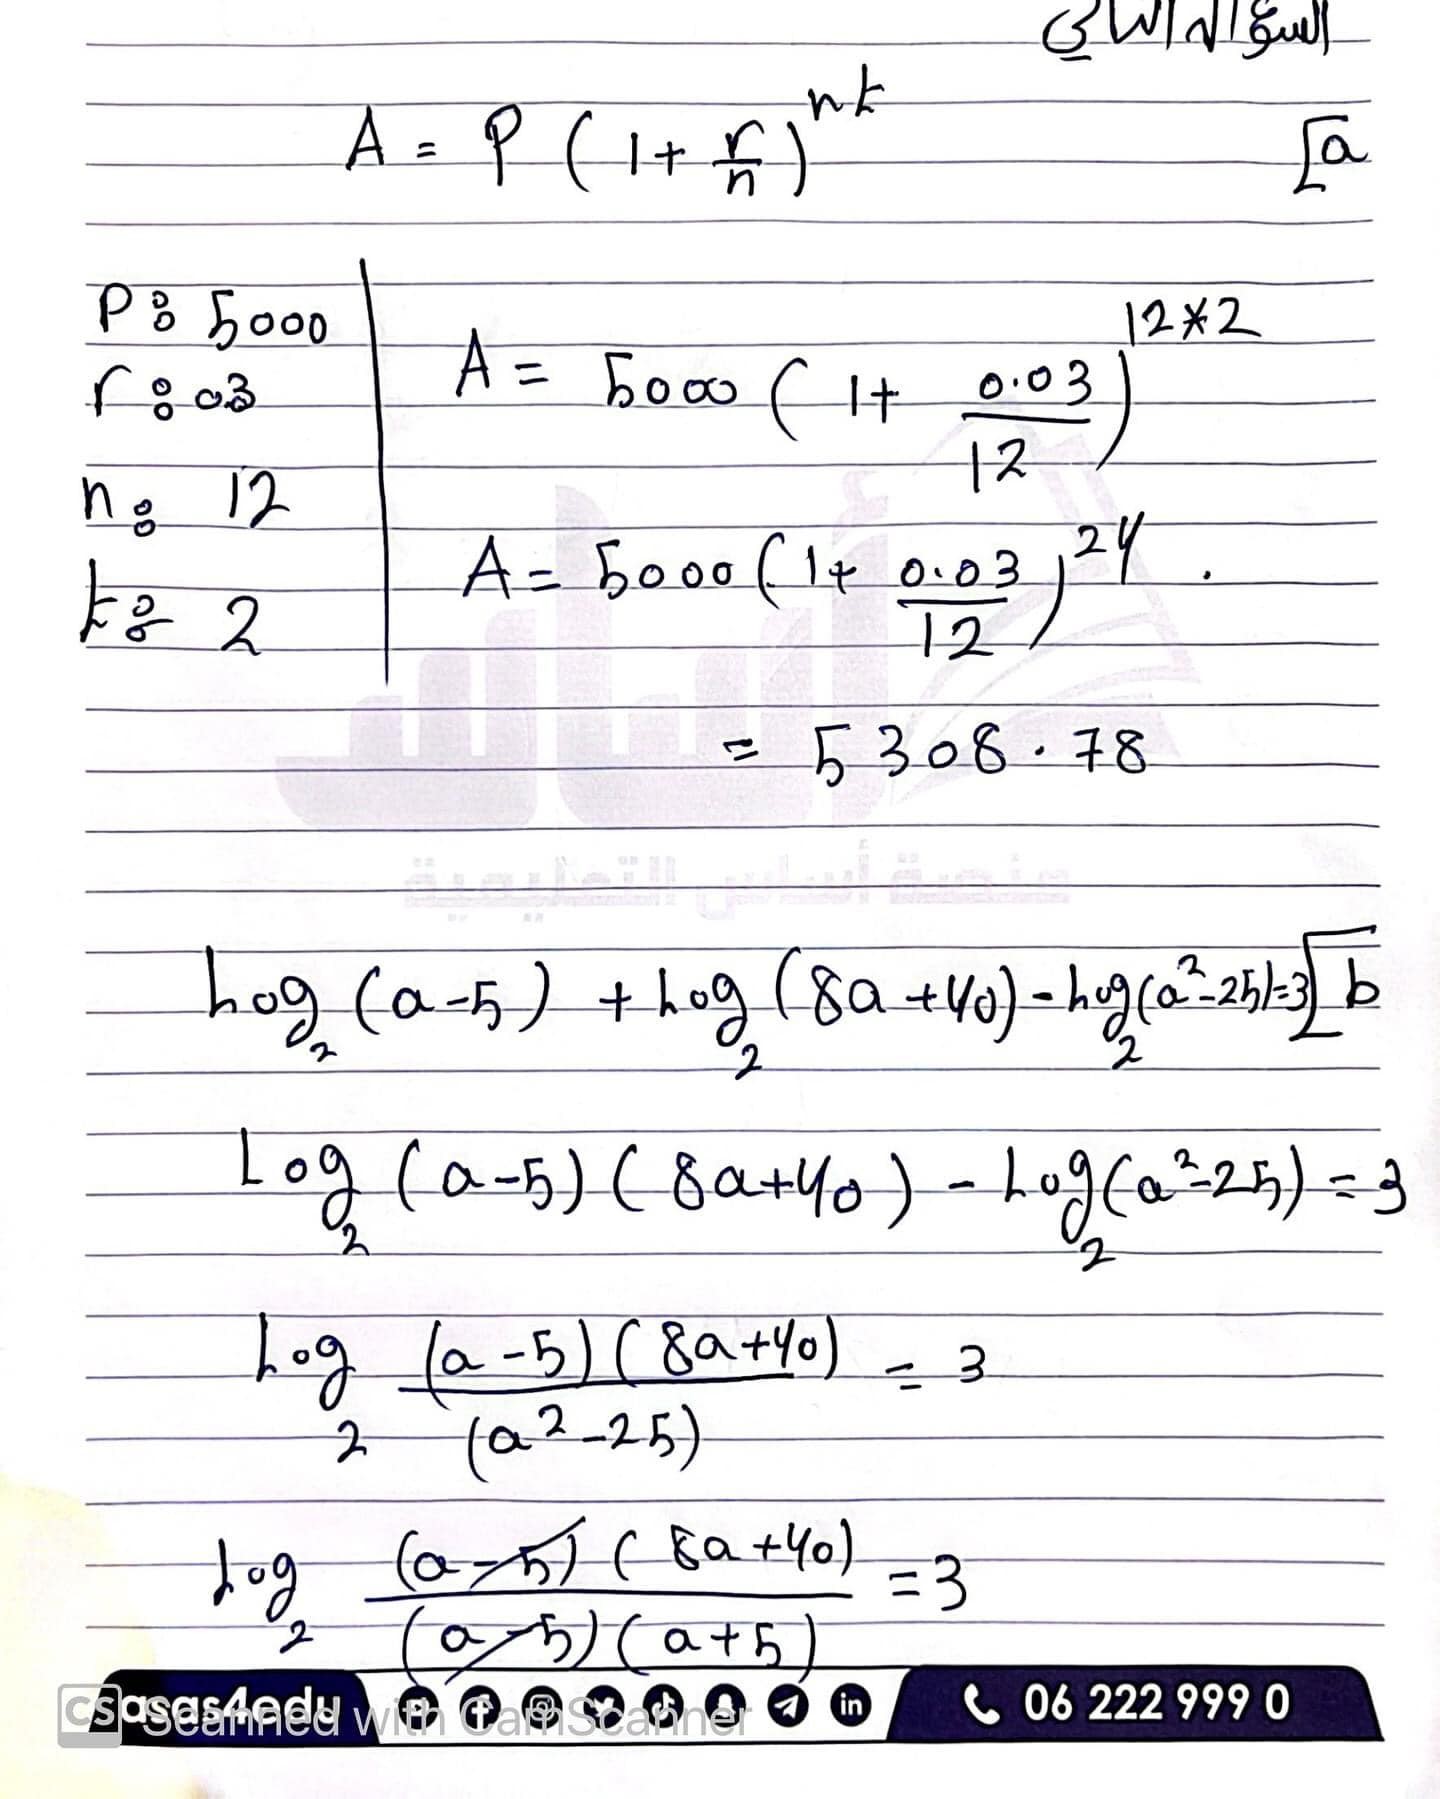 السؤال الثاني
[a
A = P (1 + r/n)^nt
P: 5000
r: 03
n: 12
t: 2
A = 5000 (1 + 0.03/12)^12*2
A = 5000 (1 + 0.03/12)^24 .
= 5308.78
منصة أساس التعليمية
[b
Log₂ (a-5) + Log₂ (8a+40) - Log₂ (a²-25) = 3
Log₂ (a-5) (8a+40) - Log₂ (a²-25) = 3
Log₂ (a-5) (8a+40) / (a²-25) = 3
Log₂ (a-5) (8a+40) / (a-5) (a+5) = 3
asas4edu
06 222 999 0
CS Scanned with CamScanner